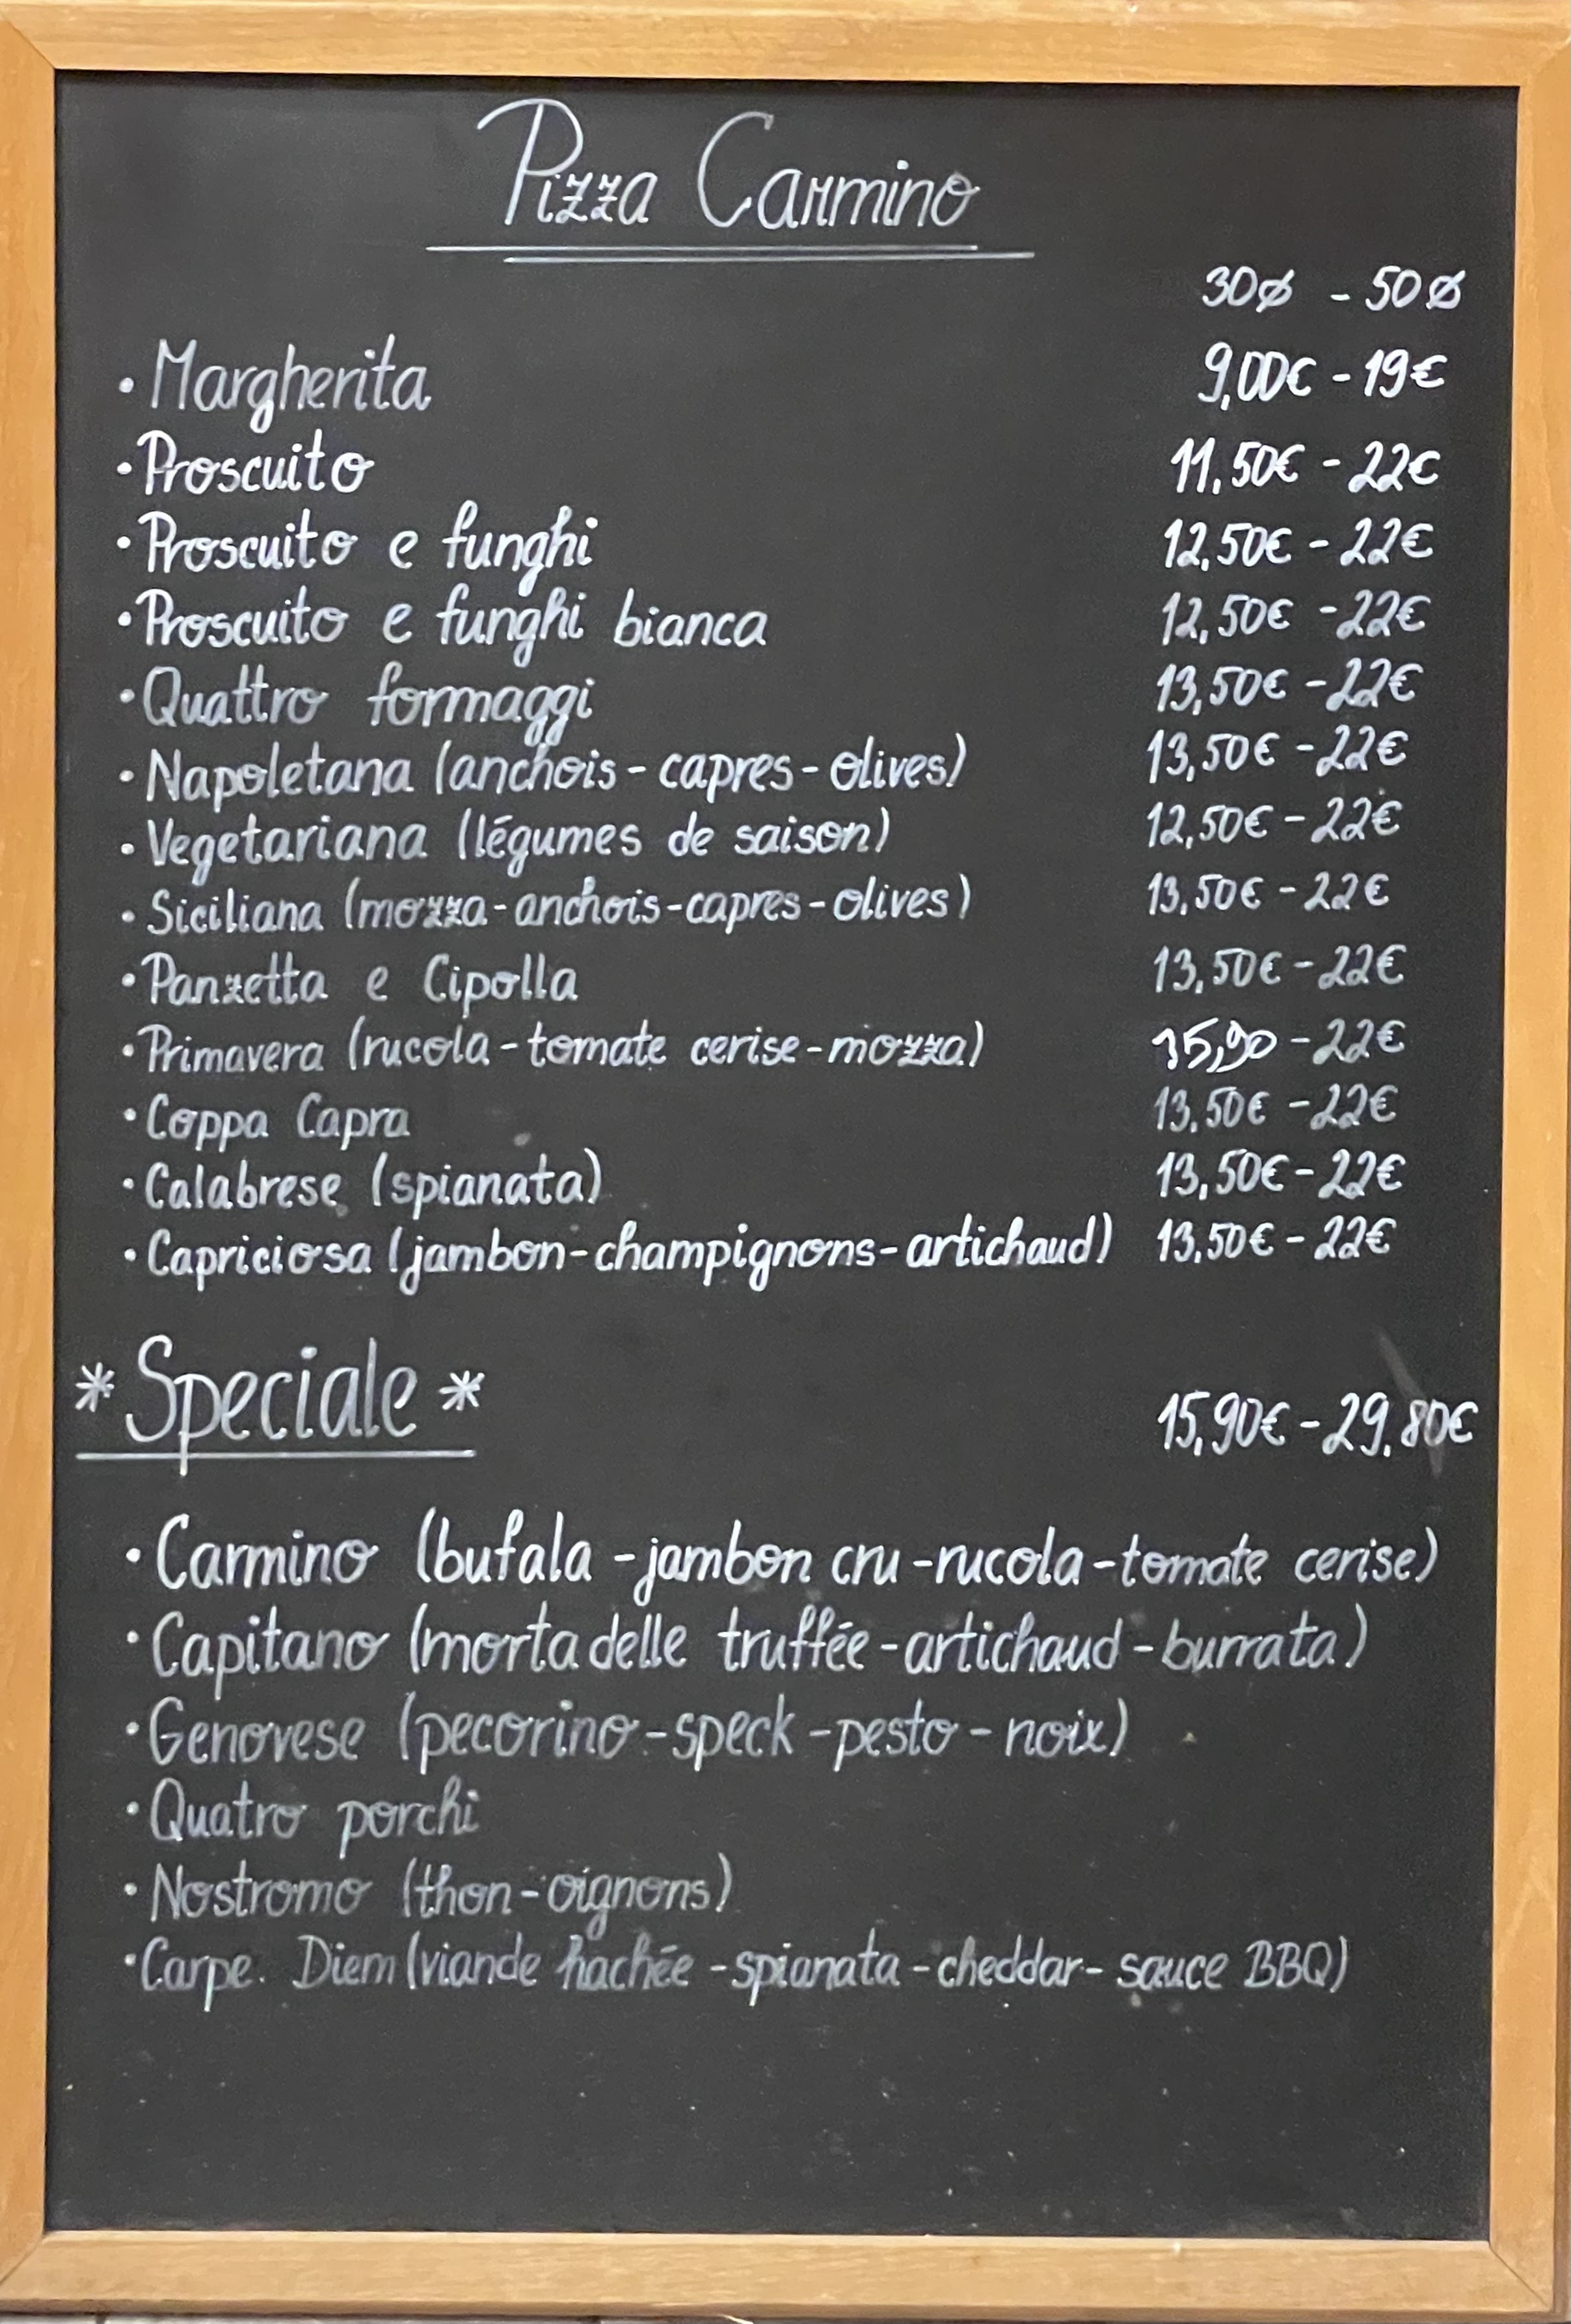 Pizza Carmino
30ø - 50ø
• Margherita 9,00€ - 19€
• Proscuito 11,50€ - 22€
• Proscuito e funghi 12,50€ - 22€
• Proscuito e funghi bianca 12,50€ - 22€
• Quattro formaggi 13,50€ - 22€
• Napoletana (anchois - capres - olives) 13,50€ - 22€
• Vegetariana (légumes de saison) 12,50€ - 22€
• Siciliana (mozza - anchois - capres - olives) 13,50€ - 22€
• Panzetta e Cipolla 13,50€ - 22€
• Primavera (rucola - tomate cerise - mozza) 15,90 - 22€
• Coppa Capra 13,50€ - 22€
• Calabrese (spianata) 13,50€ - 22€
• Capriciosa (jambon - champignons - artichaud) 13,50€ - 22€
* Speciale * 15,90€ - 29,80€
• Carmino (bufala - jambon cru - rucola - tomate cerise)
• Capitano (mortadelle truffée - artichaud - burrata)
• Genovese (pecorino - speck - pesto - noix)
• Quatro porchi
• Nostromo (thon - oignons)
• Carpe. Diem (viande hachée - spianata - cheddar - sauce BBQ)